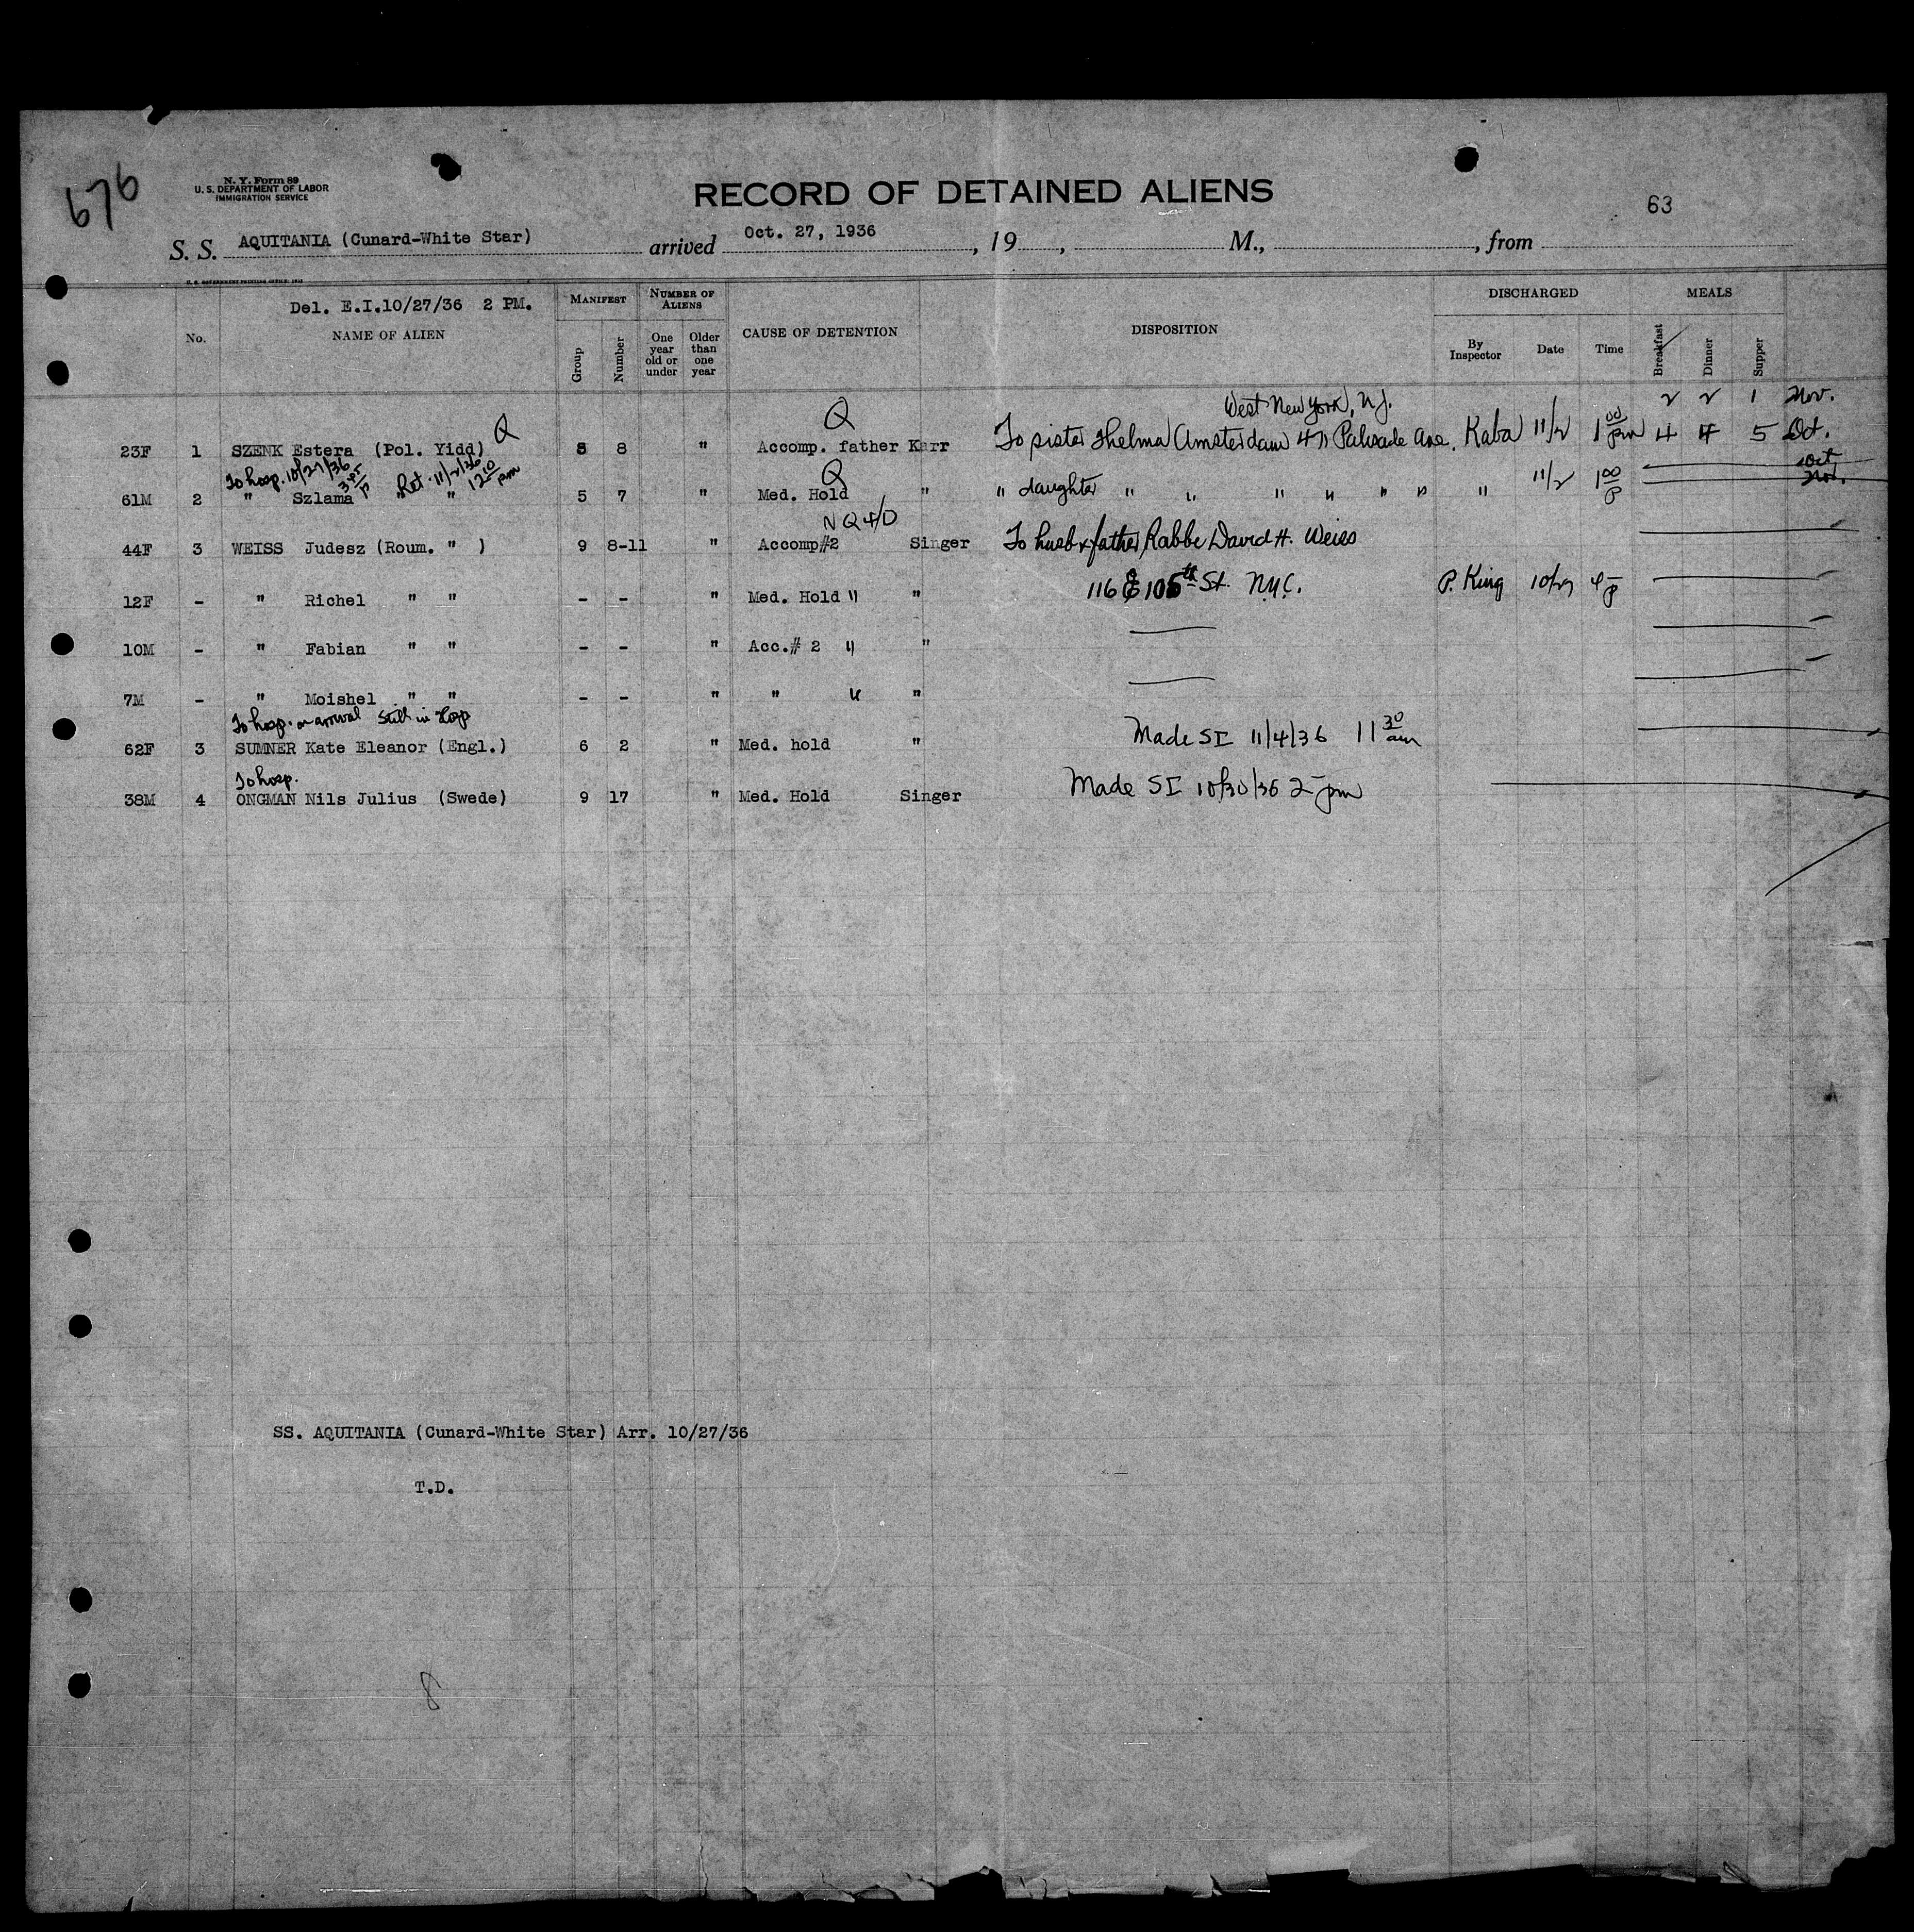 676
N. Y. Form 89
U. S. DEPARTMENT OF LABOR
IMMIGRATION SERVICE
RECORD OF DETAINED ALIENS
63
S. S. AQUITANIA (Cunard-White Star) arrived Oct. 27, 1936, 19, M., from
Del. E.I.10/27/36 2 PM. MANIFEST NUMBER OF ALIENS DISCHARGED MEALS
No. NAME OF ALIEN Group Number One year old or under Older than one year CAUSE OF DETENTION DISPOSITION By Inspector Date Time Breakfast Dinner Supper
Q West New York, N.J. 2 2 1 Nov.
23F 1 SZENK Estera (Pol. Yidd) Q 5 8 " Accomp. father Karr To sister Thelma Amsterdam Palisade Ave. Kaba 11/2 1 00 pm 4 4 5 Oct.
To hosp. 10/27/36 3 45 P Ret. 11/2/36 12 10 pm Q Oct
61M 2 " Szlama " " 5 7 " Med. Hold " " daughter " " " " " " " 11/2 1 00 P Nov.
N Q 4/D
44F 3 WEISS Judesz (Roum. " ) 9 8-11 " Accomp#2 Singer To husb & father Rabbi David H. Weiss
12F - " Richel " " - - " Med. Hold " " 116 E 105th St. N.Y.C. P. King 10/27 4 P
10M - " Fabian " " - - " Acc.# 2 " "
7M - " Moishel " " - - " " " "
To hosp. on arrival Still in Hosp
62F 3 SUMNER Kate Eleanor (Engl.) 6 2 " Med. hold " Made SI 11/4/36 11 30 am
To hosp.
38M 4 ONGMAN Nils Julius (Swede) 9 17 " Med. Hold Singer Made SI 10/30/36 2 pm
SS. AQUITANIA (Cunard-White Star) Arr. 10/27/36
T.D.
8